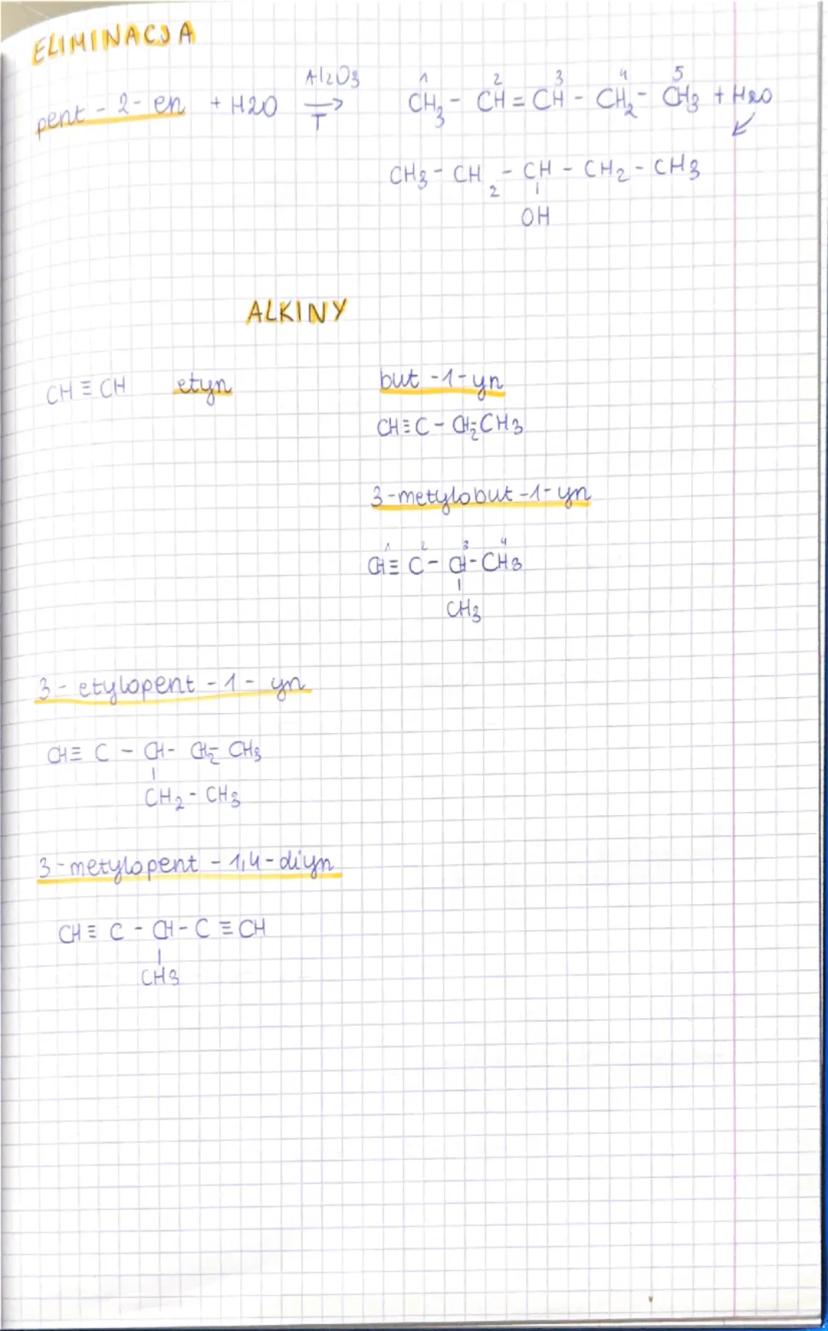 ELIMINACJA
pent-2-en + H2O Al2O3 → T CH3 - CH = CH - CH2 - CH3 + H2O
1 2 3 4 5
CH3 - CH2 - CH - CH2 - CH3
OH
ALKINY
CH ≡ CH etyn
but-1-yn
CH≡C - CH2CH3
3-metylobut-1-yn
1 2 3 4
CH≡ C - CH - CH3
CH3
3-etylopent-1-yn
CH≡ C - CH - CH2 CH3
CH2 - CH3
3-metylopent-1,4-diyn
CH≡ C - CH - C ≡ CH
CH3